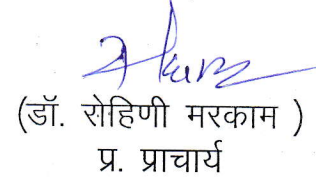 (डॉ. रोहिणी मरकाम )
प्र. प्राचार्य